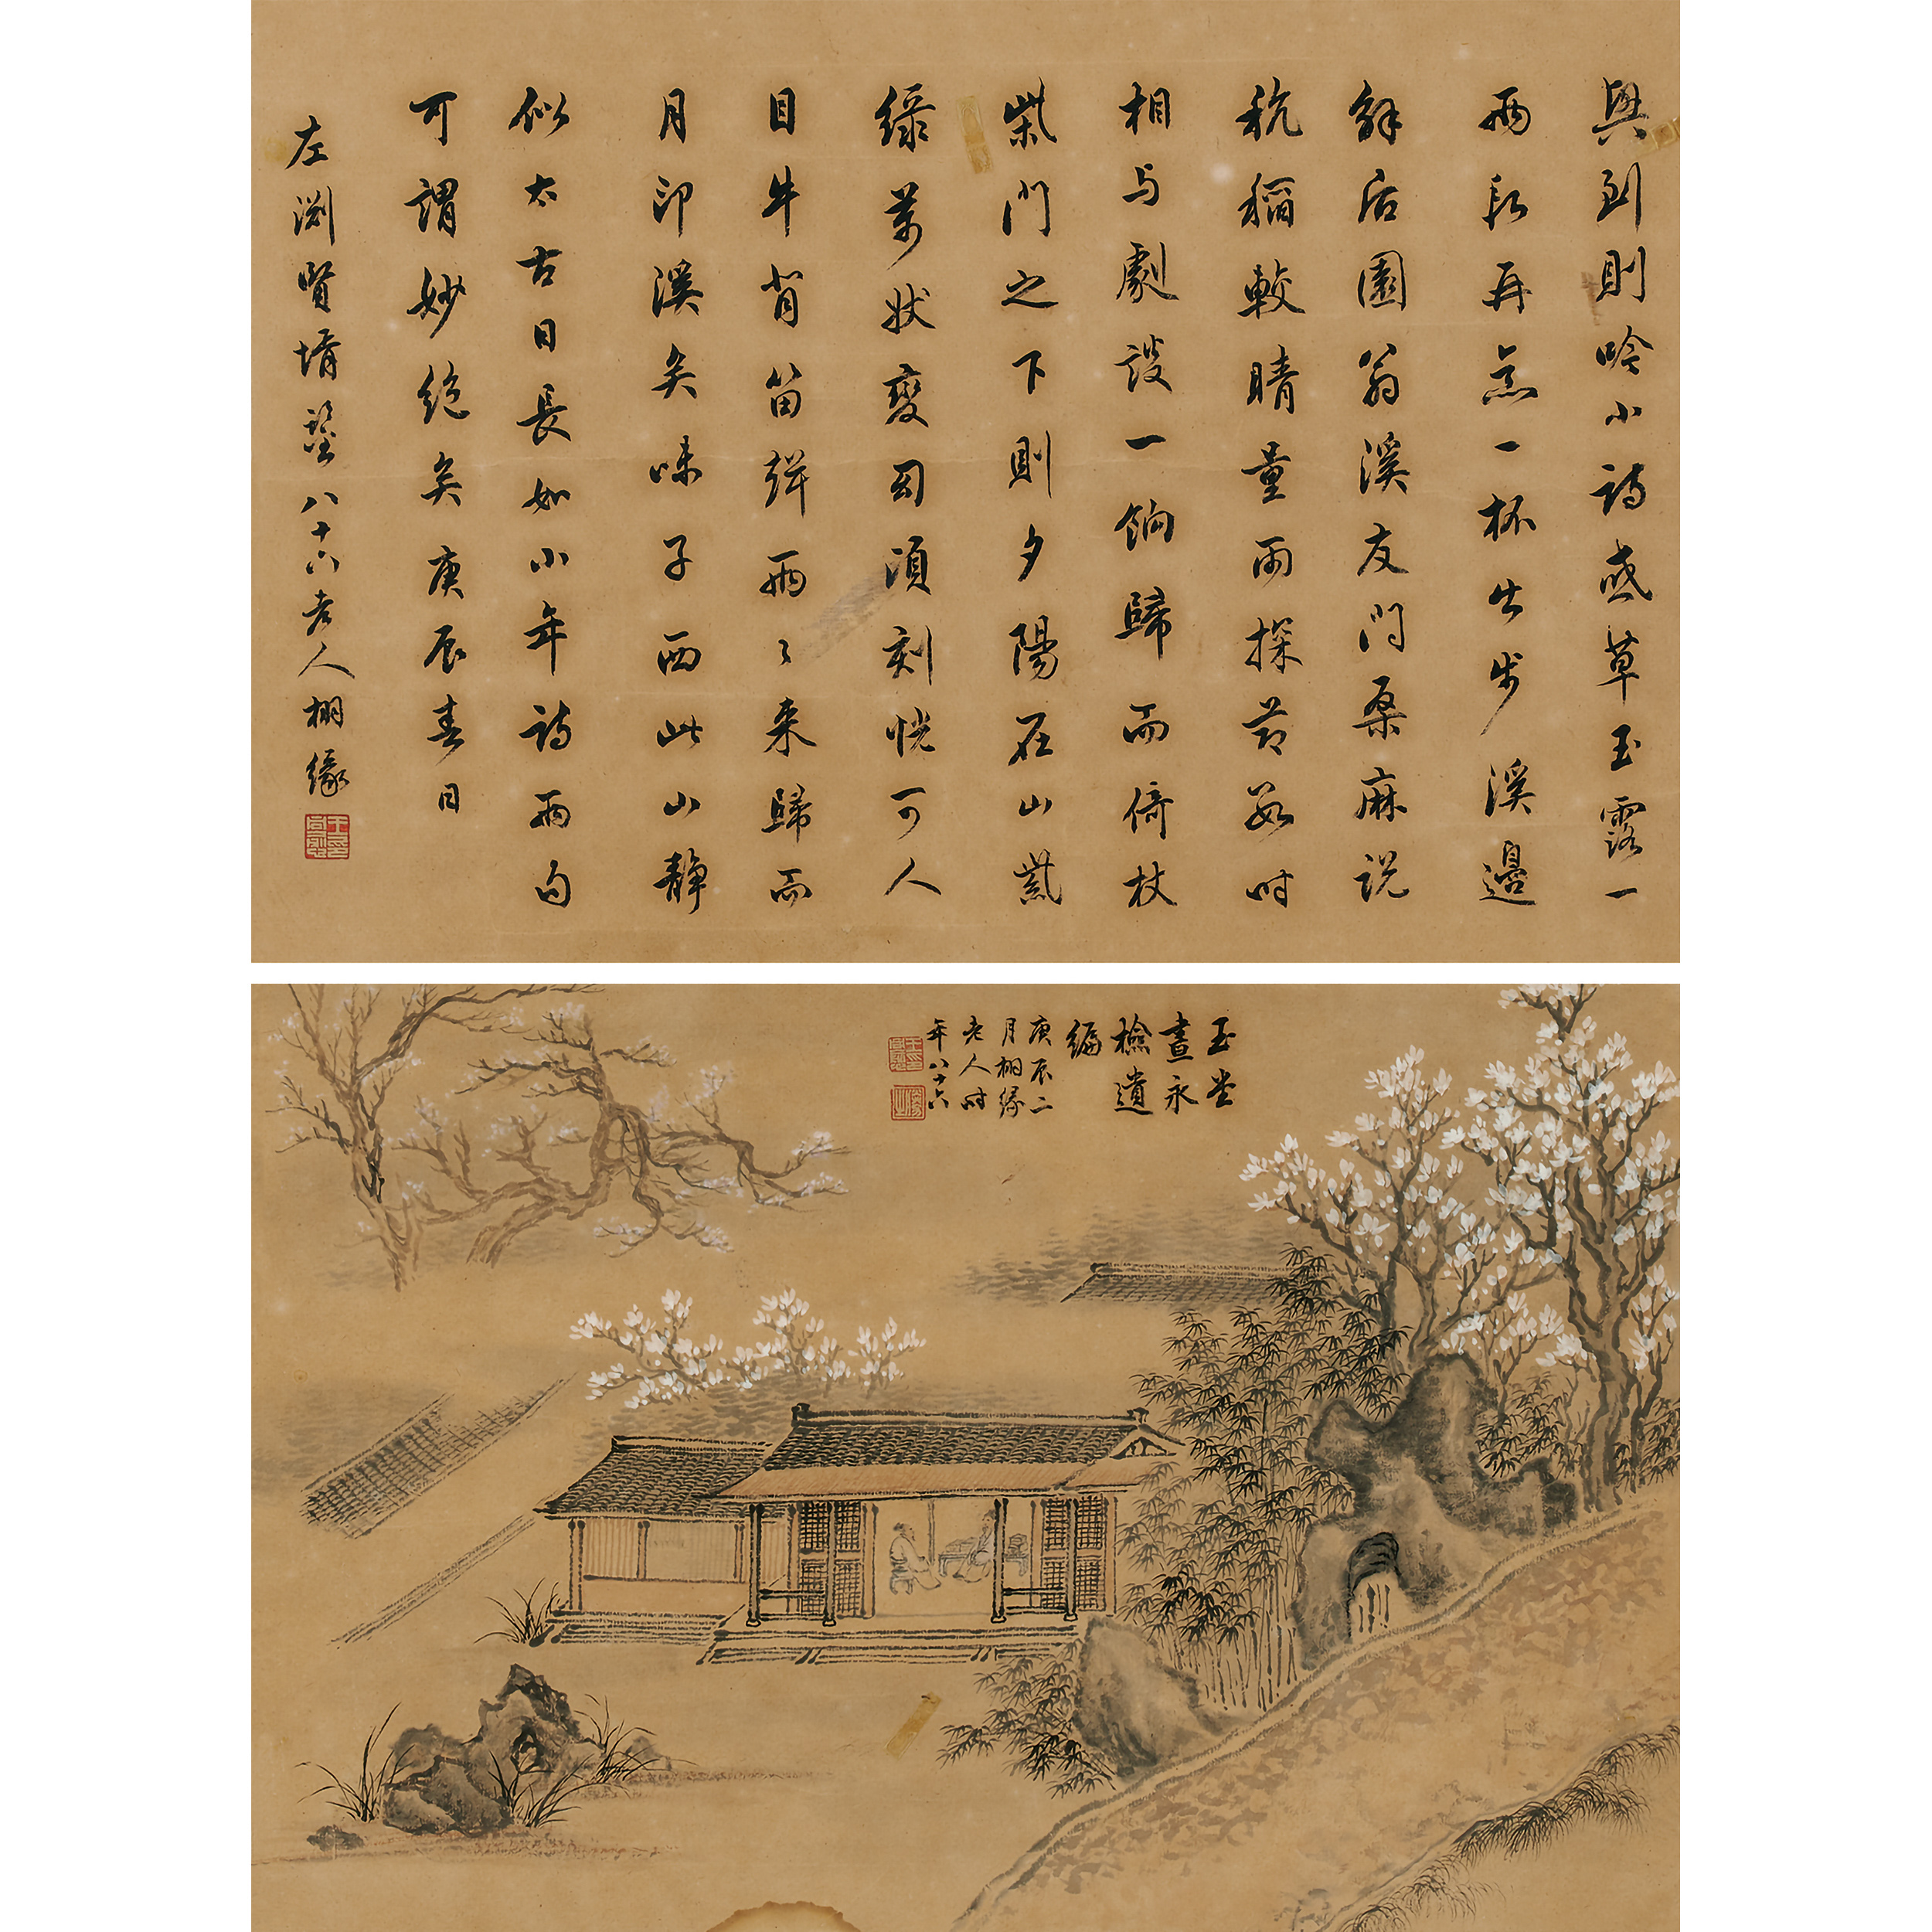 興到則吟小詩或草玉露一
兩段再烹一杯出步溪邊
解后園翁溪友問桑麻説
秔稻較晴量雨探節數時
相与劇談一餉歸而倚杖
柴門之下則夕陽在山紫
綠萬状變幻頃刻恍可人
目牛背笛聲兩〻来歸而
月印溪矣味子西此山静
似太古日長如小年詩兩句
可謂妙絶矣庚辰春日
左渊賢壻鑒八十六老人栩緣
玉堂
晝永
檢遺
編
庚辰二
月栩緣
老人時
年八十六